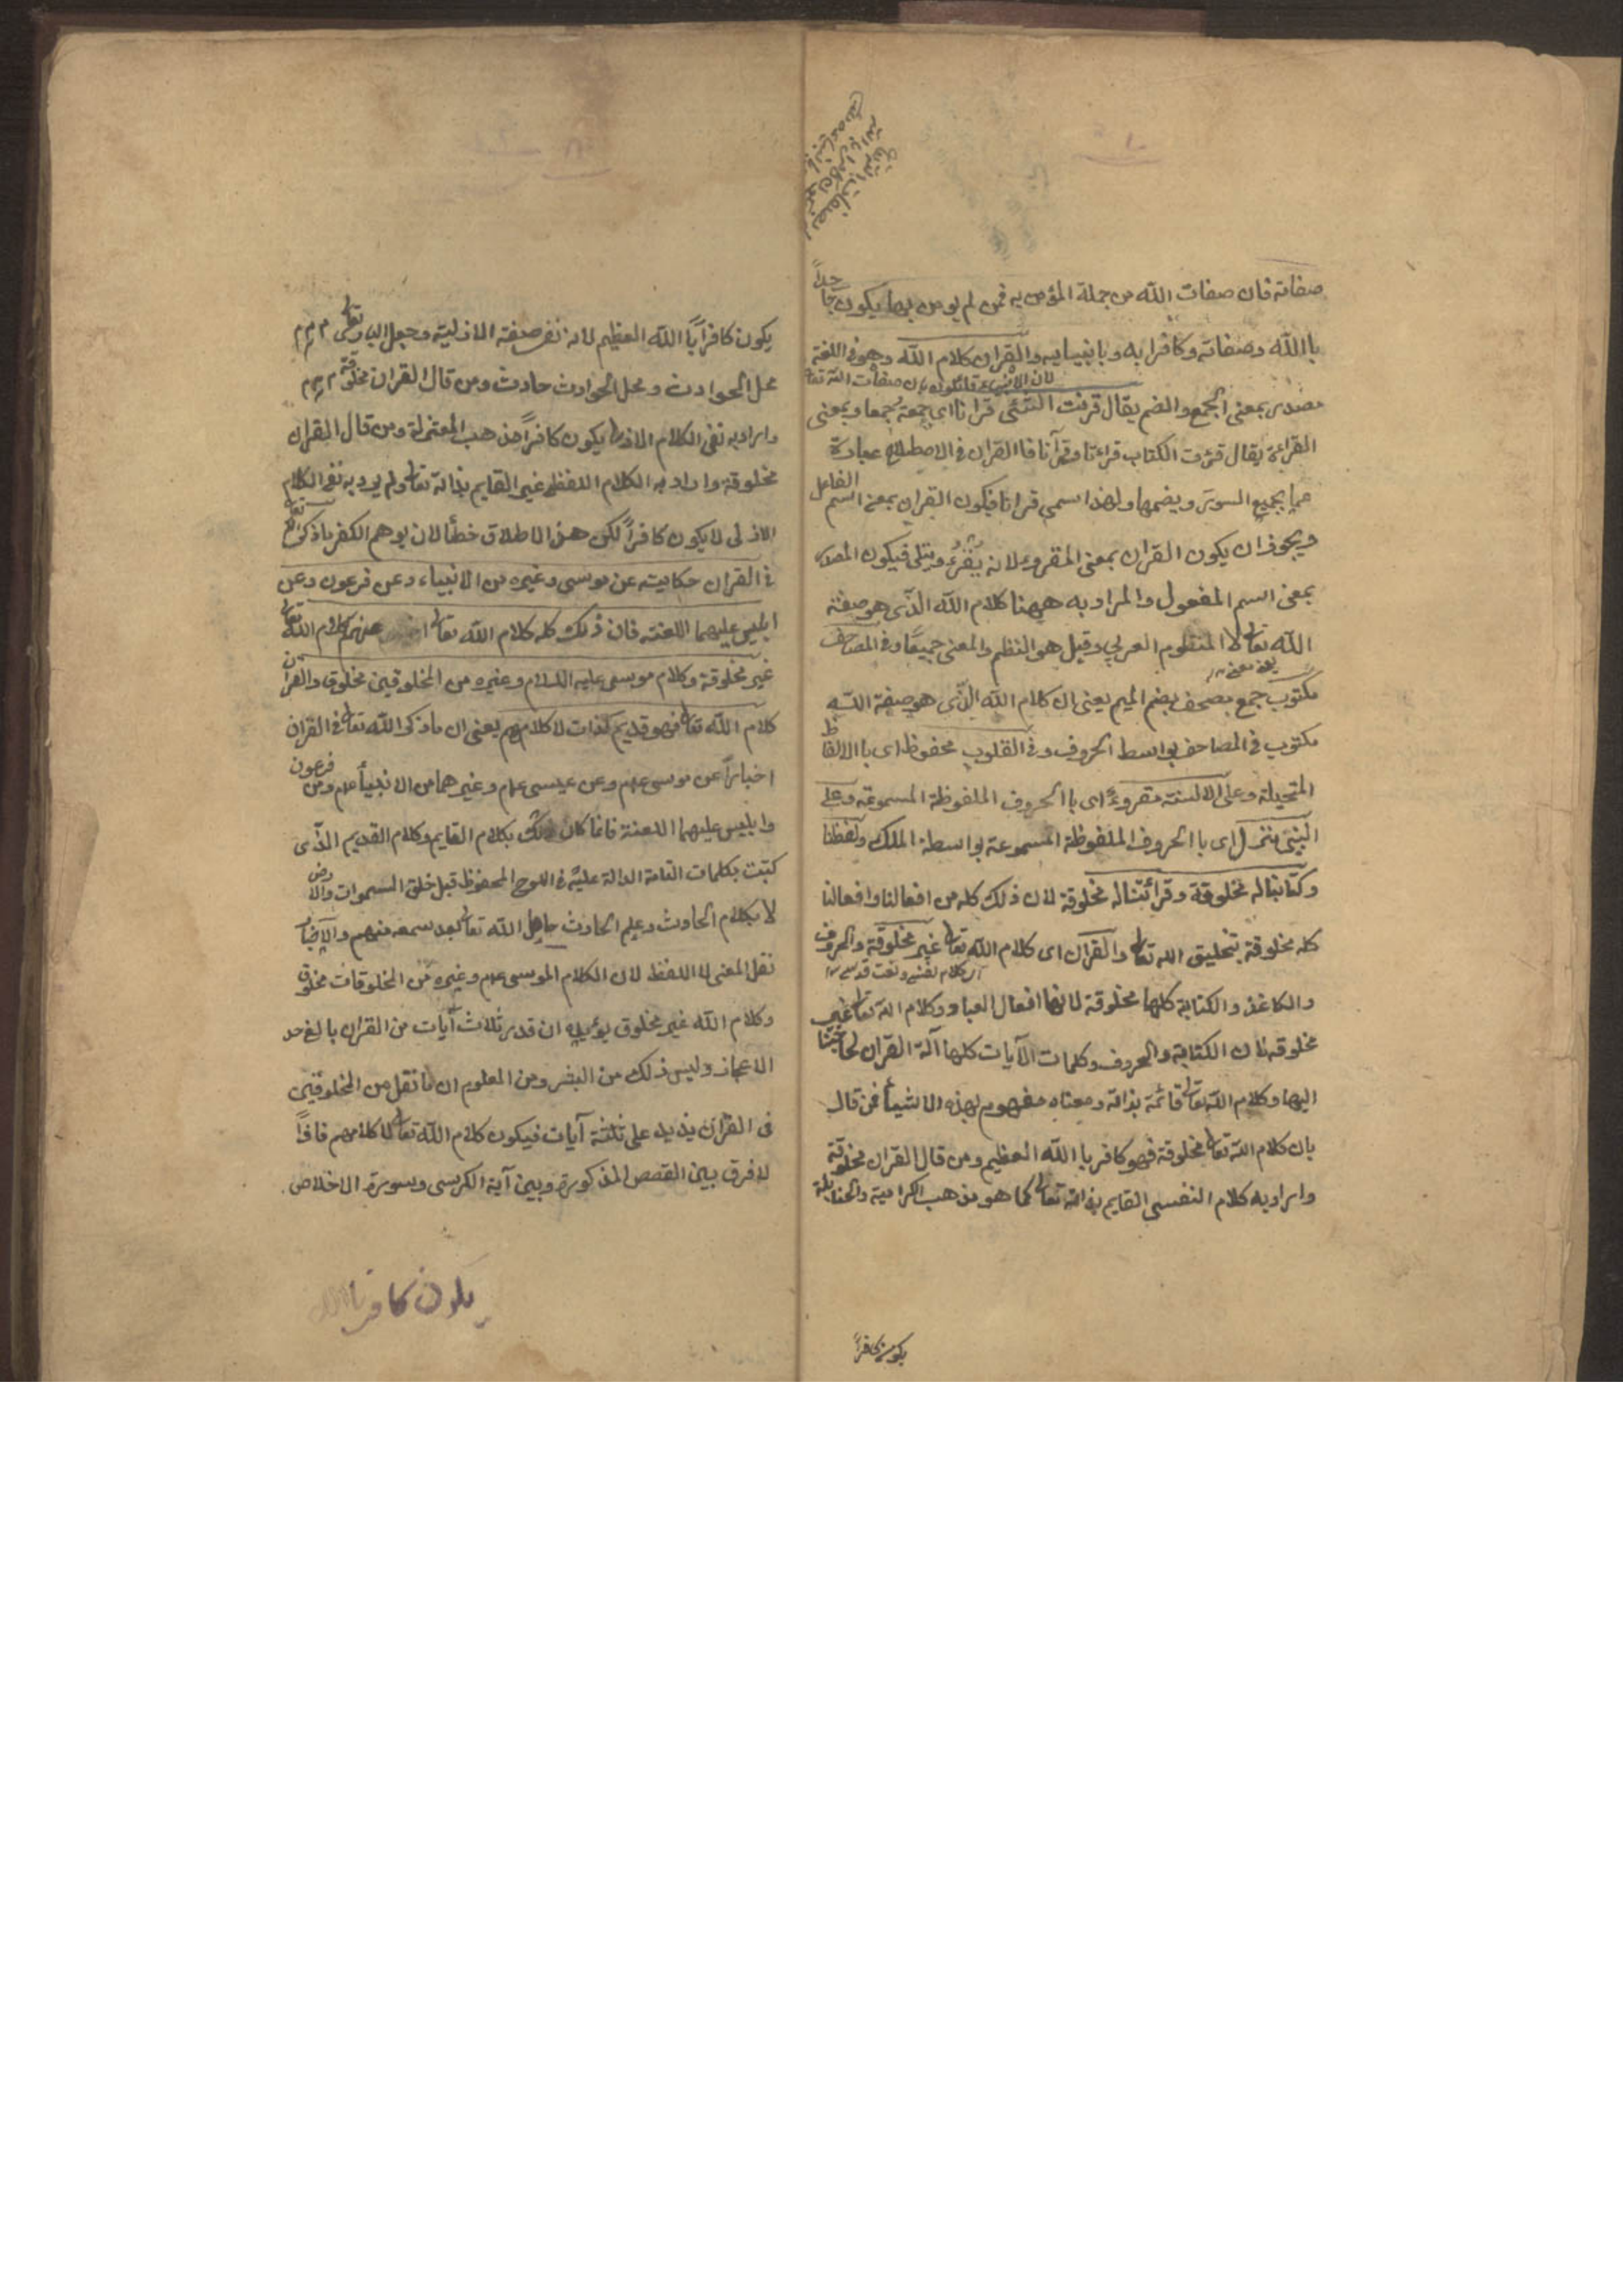 صفاته فان صفات الله من جملة المؤمن به فمن لم يومن بها يكون جاحداً
باالله وصفاته وكافرا به وبانبيايه والقران كلام الله وهو فى اللغة
لان الانبياء قائلون بان صفات الله تعا
مصدر بمعنى الجمع والضم يقال قرئت الشئى قرانا اى جمعته جمعا وبمعنى
القراءة يقال قرئت الكتاب قراءتا وقرآنا فاالقران فى الاصطلاح عبارة
عما يجميع السور ويضمها ولهذا سمى قرانا فيكون القران بمعنى اسم الفاعل
ويجوز ان يكون القران بمعنى المقروء لانه يُقْرَءُ ويتلى فيكون المصدر
بمعنى اسم المفعول والمراد به ههنا كلام الله الذّى هو صفة
الله تعالى لا المنظوم العربى وقيل هو النظم والمعنى جميعًا وفى المصاحف
مكتوب جمع مصحف بضم الميم يعنى ان كلام الله الذّى هو صفة الله
مكتوب فى المصاحف بواسط الحروف وفى القلوب محفوظ اى باالالفاظ
المتخيلة وعلى الالسنة مقروءً اى باالحروف الملفوظة المسموعة وعلى
النبىّ منزل اى باالحروف الملفوظة المسموعة بواسطة الملك ولفظنا
وكتابتنا له مخلوقة وقرائتنا له مخلوقة لان ذلك كله من افعالنا وافعالنا
كله مخلوقة بتخليق الله تعالى والقران اى كلام الله تعالى غير مخلوقة والحروف
والكاغذ والكتابة كلها مخلوقة لانها افعال العباد وكلام الله تعالى غير
مخلوقه لان الكتابة والحروف وكلمات الآيات كلها آلة القران لحاجتنا
اليها وكلام الله تعالى قائمة بذاته ومعناه مفهوم بهذه الاشيأ فمن قال
بان كلام الله تعالى مخلوقة فهو كافر باالله العظيم ومن قال القران مخلوقة
واراد به كلام النفسى القايم بذاته تعالى كما هو مذهب الكرامية والحنابلة
يكون كافراً
يكون كافراً باالله العظيم لانه نفى صفته الازلية وجعل البارى تعالى
محل الحوادث ومحل الحوادث حادث ومن قال القران مخلوقة
واراد به نفى الكلام الازلى يكون كافراً مذهب المعتزلة ومن قال القران
مخلوقة واراد به الكلام اللفظى غير القايم بذاته تعالى ولم يرد به نفى الكلام
الازلى لا يكون كافراً لكن هذا الاطلاق خطأ لان يوهم الكفر ماذكر الله تعالى
فى القران حكاية عن موسى وغيره من الانبياء وعن فرعون وعن
ابليس عليهما اللعنة فان ذلك كله كلام الله تعالى عنهم كلام الله تعالى
غير مخلوقة وكلام موسى عليه السلام وغيره من المخلوقين مخلوق والقران
كلام الله تعالى فهو قديم كذات لا كلامهم يعنى ان ماذكر الله تعالى فى القران
اخباراً عن موسى عم وعن عيسى عم وغيرهما من الانبيأ عم ومن فرعون
وابليس عليهما اللعنة فانما كان ذلك بكلام القايم وكلام القديم الذّى
كتبت بكلمات التامة الدالة عليّه فى اللوح المحفوظ قبل خلق السموات والارض
لا بكلام الحادث وعلم الحادث حاصل الله تعالى بعد سمعه منهم والاخبار
نقل المعنى لا اللفظ لان الكلام الموسى عم وغيره من المخلوقات مخلوق
وكلام الله غير مخلوق يؤيده ان قدر ثلاث آيات من القران بالغ حد
الاعجاز وليس ذلك من البشر ومن المعلوم ان ما نقل من المخلوقين
فى القران يزيد على ثلثة آيات فيكون كلام الله تعالى لا كلامهم فاذاً
لا فرق بين القصص المذكورة وبين آية الكرسى وسورة الاخلاص
يكون كافر باالله